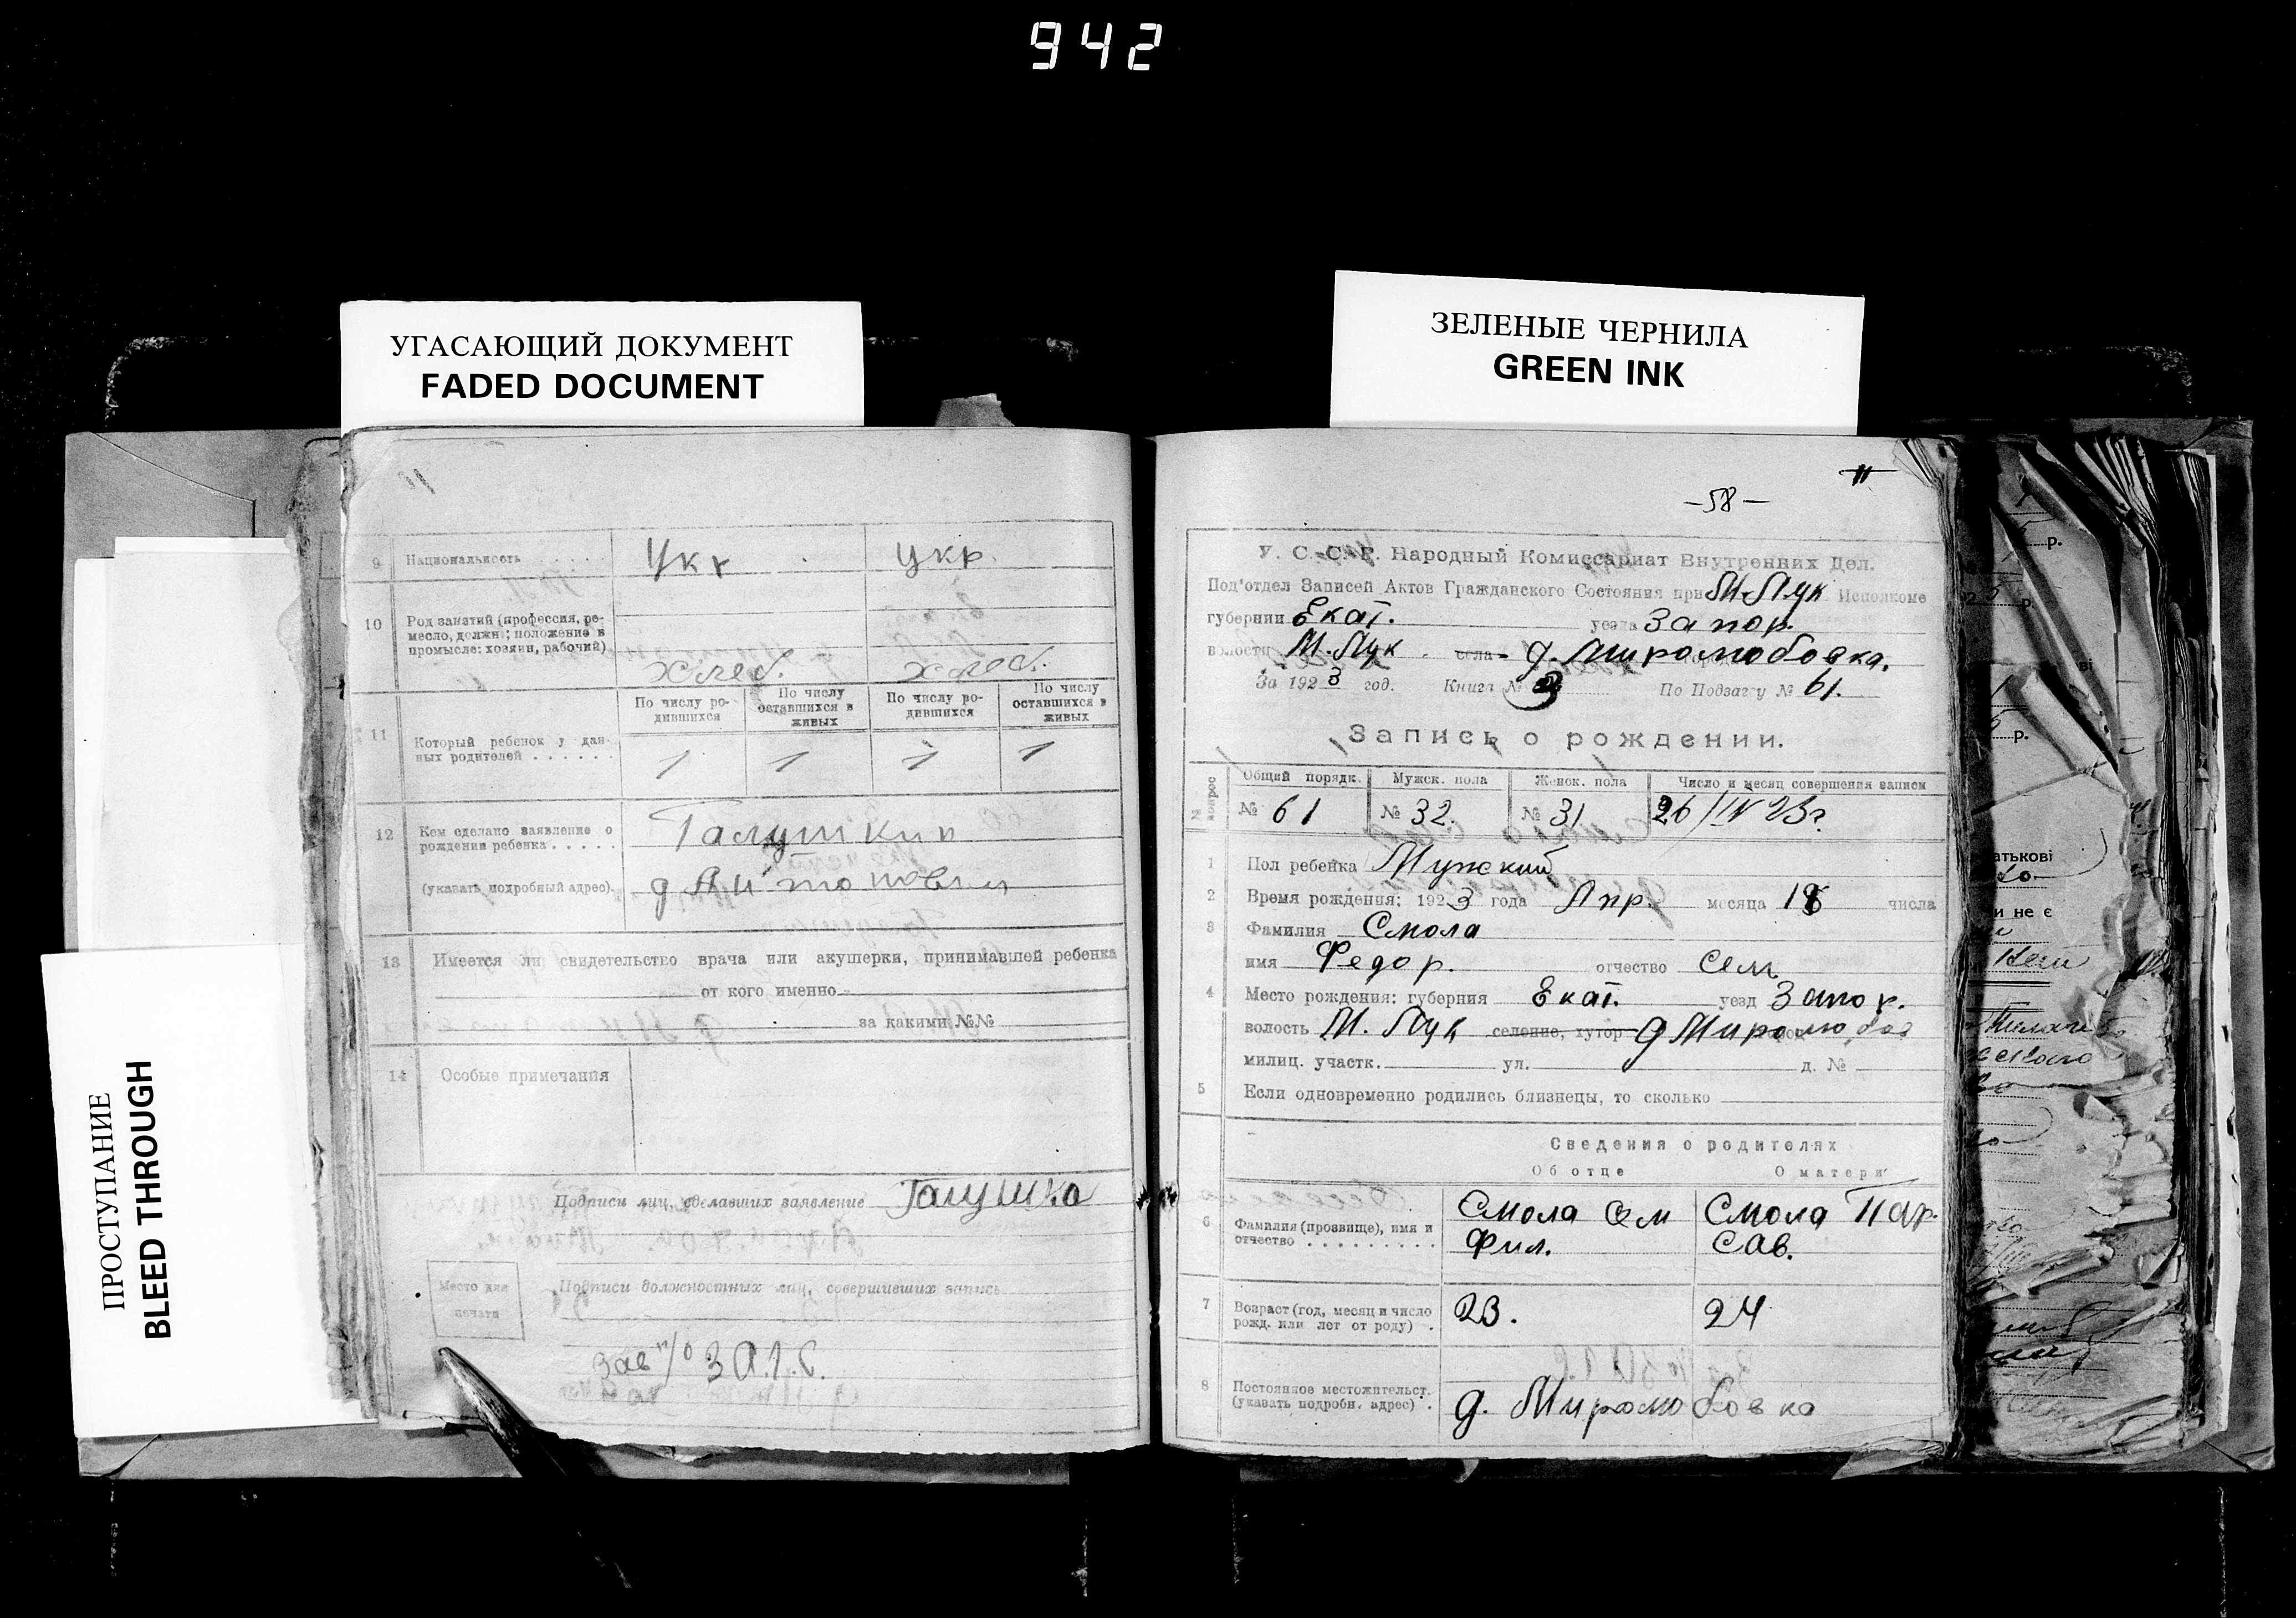 942
УГАСАЮЩИЙ ДОКУМЕНТ
FADED DOCUMENT
ЗЕЛЕНЫЕ ЧЕРНИЛА
GREEN INK
ПРОСТУПАНИЕ
BLEED THROUGH
9 Национальность Укр Укр.
10 Род занятий (профессия, ре-
месло, должн.; положение в
промысле: хозяин, рабочий)
хлеб. хлеб.
По числу ро-
дившихся
По числу
оставшихся в
живых
По числу ро-
дившихся
По числу
оставшихся в
живых
11 Который ребенок у дан-
ных родителей . . . . . . 1 1 1 1
12 Кем сделано заявление о
рождении ребенка . . . . .
(указать подробный адрес).
13 Имеется ли свидетельство врача или акушерки, принимавшей ребенка
от кого именно
за какими №№
14 Особые примечания
Подписи лиц, сделавших заявление Галушка
Место для
печати
Подписи должностных лиц, совершивших запись
Зав п/о З.А.Г.С.
11
-58-
У. С. С. Р. Народный Комиссариат Внутренних Дел.
Под'отдел Записей Актов Гражданского Состояния при М-Лук Исполкоме
губернии Екат. уезда Запор.
волости М. Лук села д. Миролюбовка.
За 1923 год. Книга № 3 По Подзагу № 61.
Запись о рождении.
№ вопрос Общий порядк. Мужск. пола Женск. пола Число и месяц совершения записи
№ 61 № 32. № 31 26/IV 23г
1 Пол ребенка Мужский
2 Время рождения: 1923 года Апр. месяца 18 числа
3 Фамилия Смола
имя Федор. отчество Сем
4 Место рождения: губерния Екат. уезд Запор.
волость М. Лук селение, хутор д Миролюбов
милиц. участк. ул. д. №
5 Если одновременно родились близнецы, то сколько
Сведения о родителях
Об отце О матери
6 Фамилия (прозвище), имя и
отчество . . . . . . . . .
Смола Сем
Фил.
Смола Пар.
Сав.
7 Возраст (год, месяц и число
рожд. или лет от роду) . 23. 24
8 Постоянное местожительст.
(указать подробн. адрес) . д. Миролюбовка